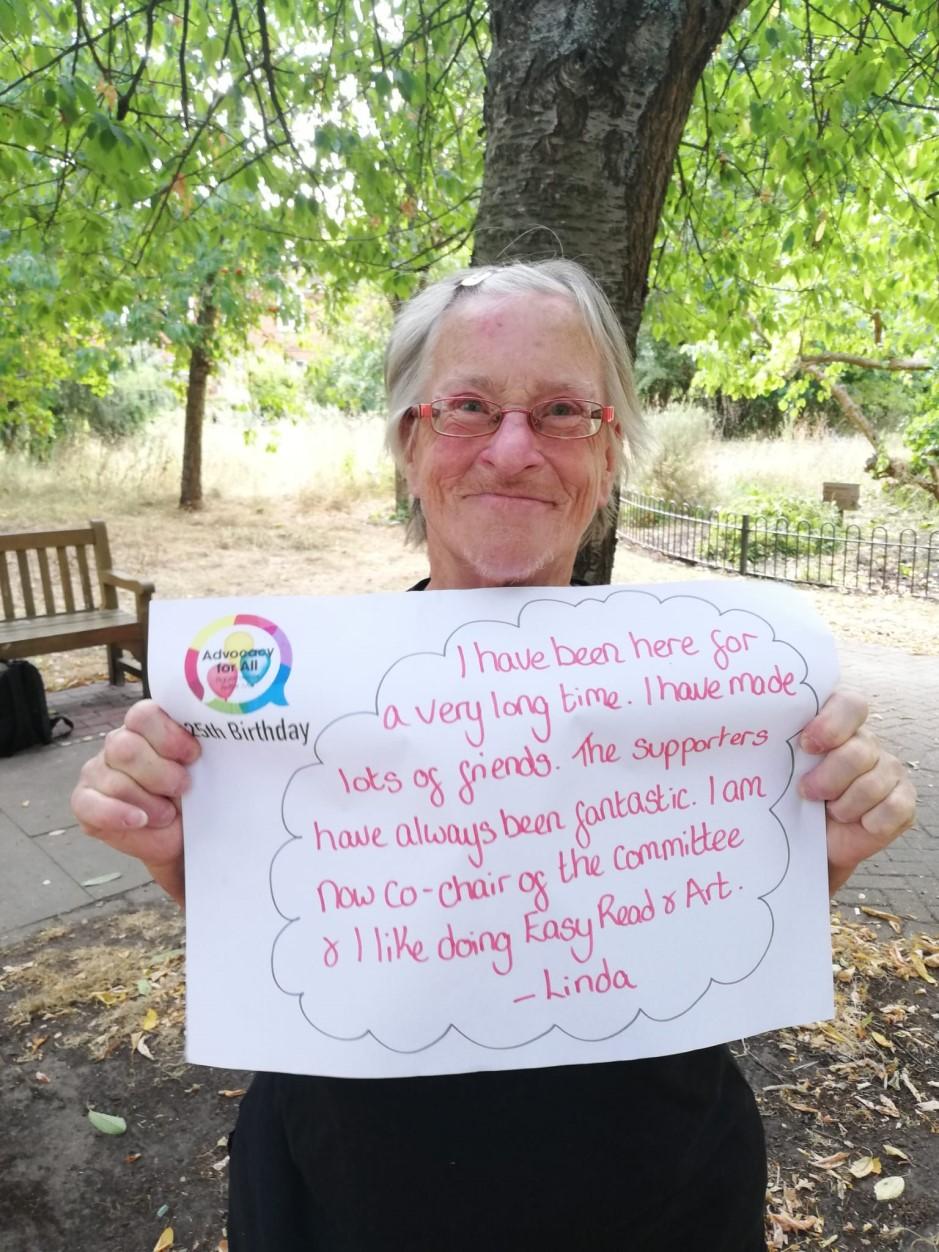 Advocacy
for All
25th Birthday
I have been here for
a very long time. I have made
lots of friends. The supporters
have always been fantastic. I am
now co-chair of the committee
& I like doing Easy Read & Art.
- Linda